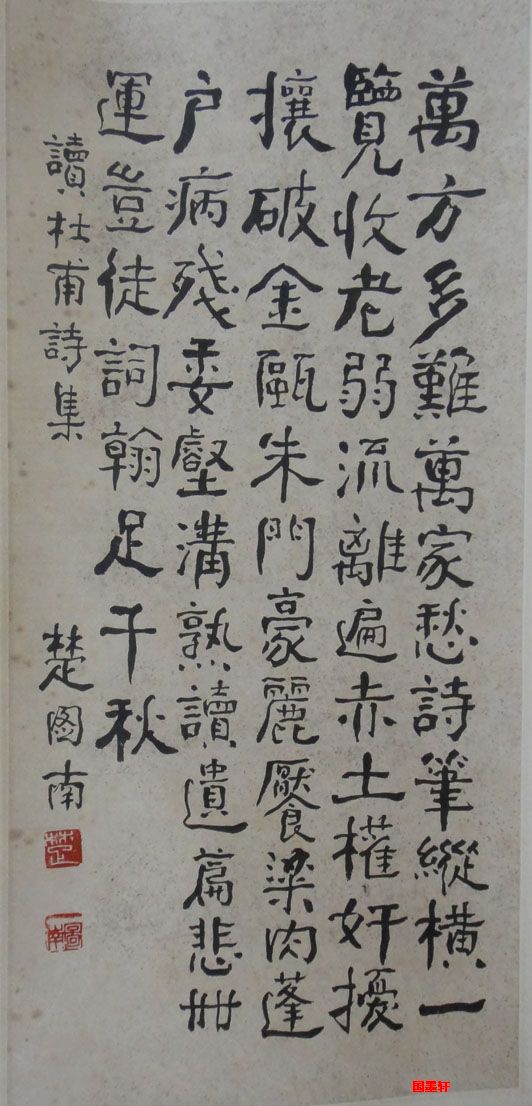 萬方多難萬家愁詩筆縱橫一
覽收老弱流離遍赤土權奸擾
攘破金甌朱門豪麗饜粱肉蓬
户病殘委壑溝熟讀遺篇悲世
運豈徒詞翰足千秋
讀杜甫詩集
楚图南
楚
圖南
国墨轩